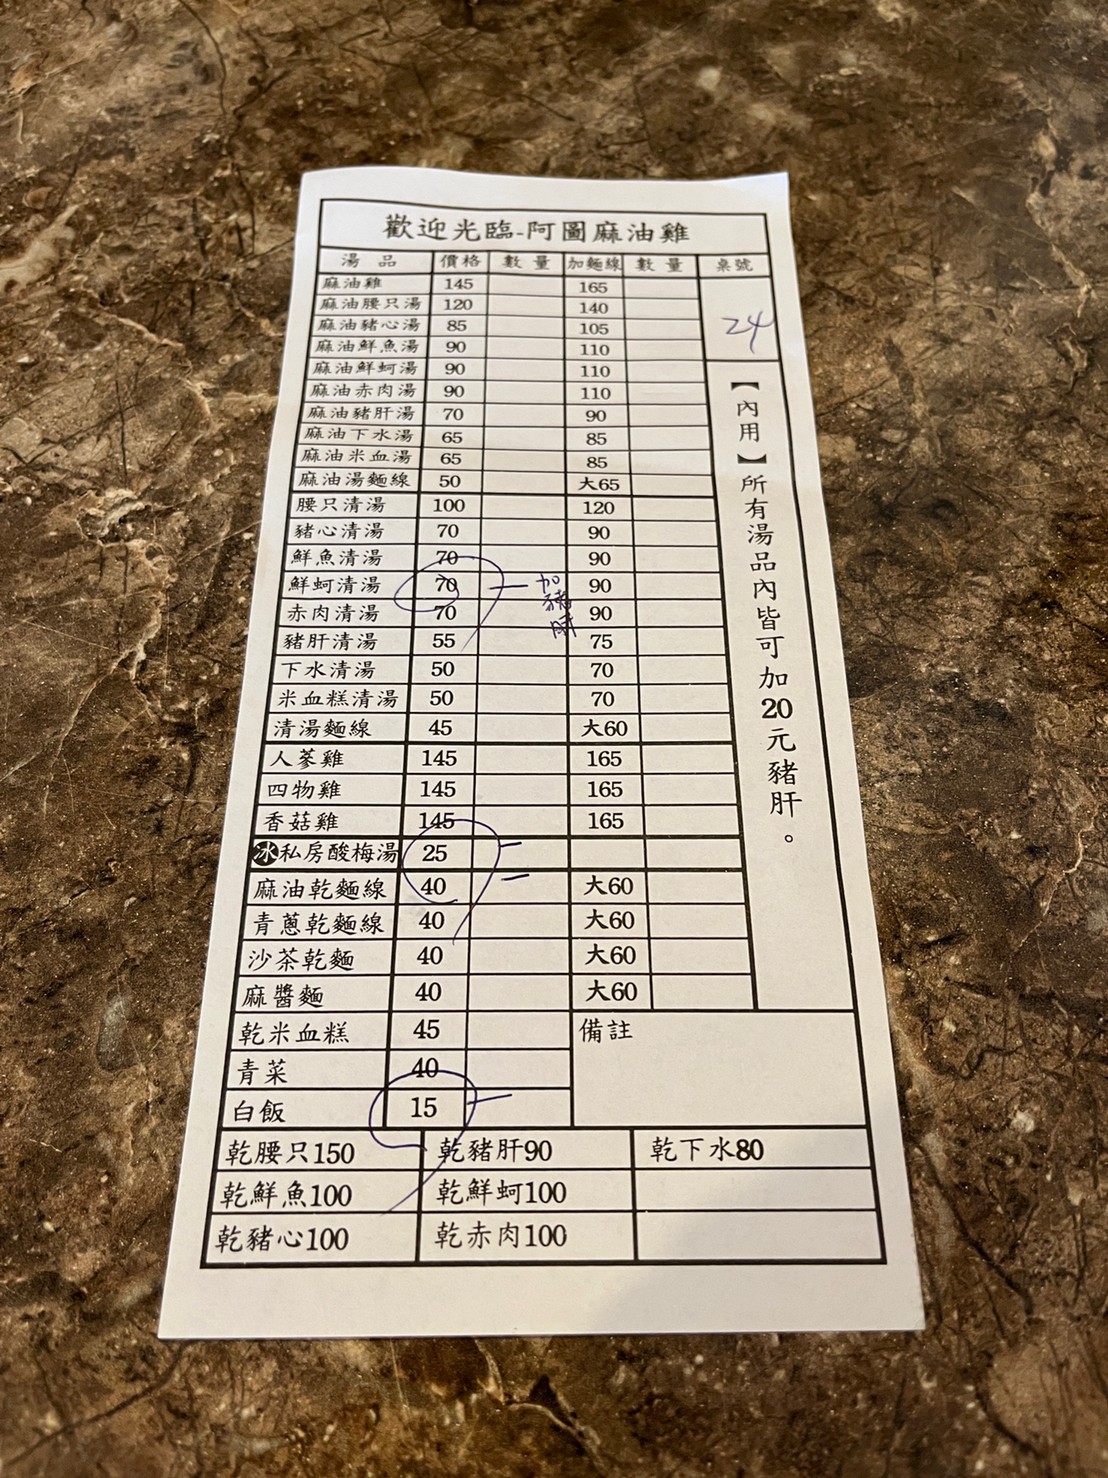 歡迎光臨-阿圖麻油雞
湯品 價格 數量 加麵線 數量 桌號
麻油雞 145 165
麻油腰只湯 120 140
麻油豬心湯 85 105
24
麻油鮮魚湯 90 110
麻油鮮蚵湯 90 110
麻油赤肉湯 90 110
麻油豬肝湯 70 90
麻油下水湯 65 85
麻油米血湯 65 85
麻油湯麵線 50 大65
腰只清湯 100 120
豬心清湯 70 90
鮮魚清湯 70 90
鮮蚵清湯 70 一 加豬肝 90
赤肉清湯 70 90
豬肝清湯 55 75
下水清湯 50 70
米血糕清湯 50 70
清湯麵線 45 大60
人蔘雞 145 165
四物雞 145 165
香菇雞 145 165
冰私房酸梅湯 25 一
麻油乾麵線 40 一 大60
青蔥乾麵線 40 大60
沙茶乾麵 40 大60
麻醬麵 40 大60
【內用】所有湯品內皆可加20元豬肝。
乾米血糕 45
青菜 40
白飯 15 一
備註
乾腰只150 乾豬肝90 乾下水80
乾鮮魚100 乾鮮蚵100
乾豬心100 乾赤肉100